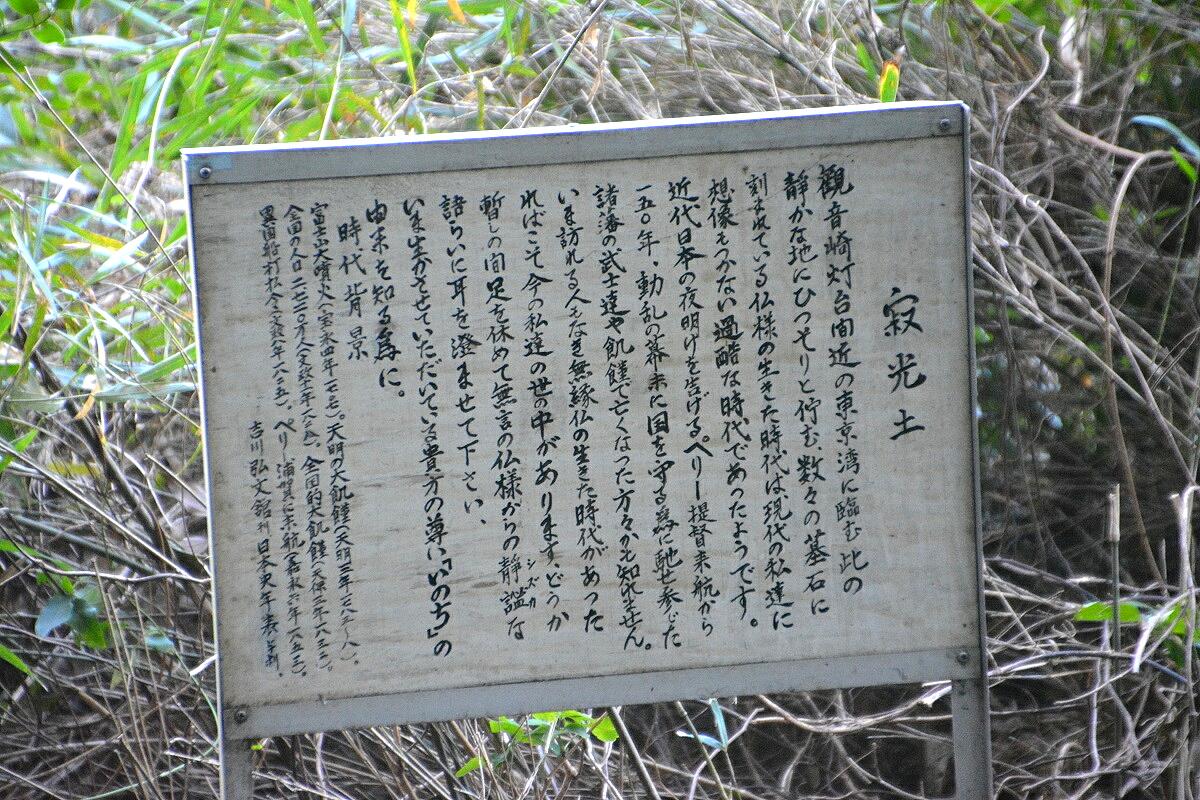 寂光土
観音崎灯台間近の東京湾に臨む此の
静かな地にひっそりと佇む、数々の墓石に
刻まれている仏様の生きた時代は現代の私達に
想像もつかない過酷な時代であったようです。
近代日本の夜明けを告げるペリー提督来航から
一五〇年、動乱の幕末に国を守る為に馳せ参じた
諸藩の武士達や飢饉で亡くなった方々かも知れません。
いま訪れる人もなき無縁仏の生きた時代があった
ればこそ今の私達の世の中があります、どうか
暫しの間足を休めて無言の仏様からの静謐な
シズカ
語らいに耳を澄ませて下さい、
いま生かさせていただいている貴方の尊い「いのち」の
由来を知る為に。
時代背景
富士山大噴火(宝永四年一七〇七)。天明の大飢饉(天明三年一七八三〜八)。
全国の人口二七二〇万人(文政十一年一八二八)。全国的大飢饉(天保三年一八三二)。
異国船打払令(文政八年一八二五)。ペリー浦賀に来航(嘉永六年一八五三)。
吉川弘文館刊日本史年表